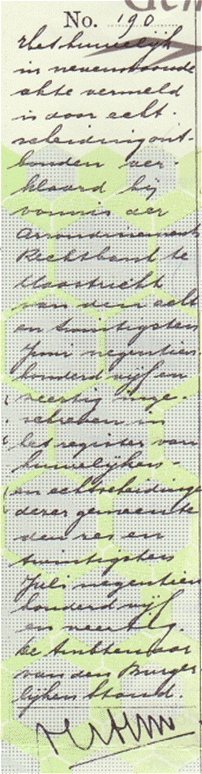 No. 190
Het huwelijk
in nevenstaande
akte vermeld
is door echt-
scheiding ont-
bonden ver-
klaard bij
vonnis der
Arrondissements
Rechtbank te
Maastricht
van den acht
en twintigsten
Juni negentien-
honderd vijf en
veertig inge-
schreven in
het register van
huwelijken-
en echtscheidingen
dezer gemeente
den zes en
twintigsten
Juli negentien
honderd vijf
en veertig.
De Ambtenaar
van den Burger-
lijken Stand.